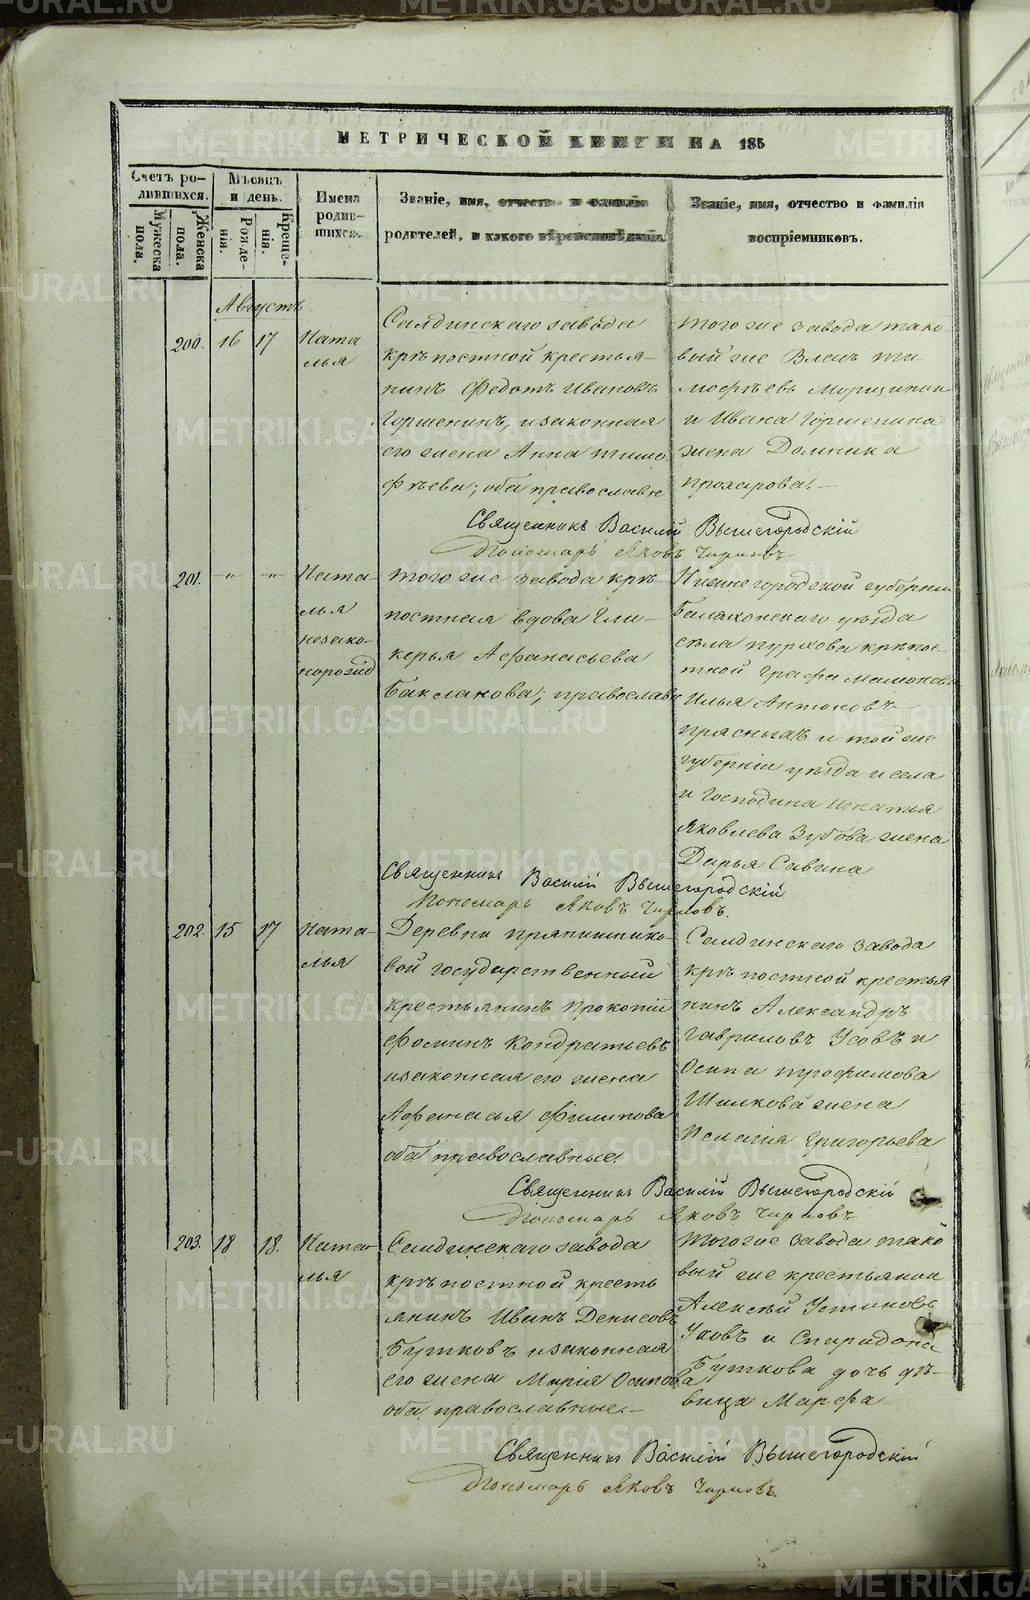 МЕТРИЧЕСКОЙ КНИГИ НА 185
Счетъ ро-
дившихся.
Мужеска
пола.
Женска
пола.
Мѣсяцъ
и день.
Рожде-
нія.
Креще-
нія.
Имена
родив-
шихся.
Званіе, имя, отчество и фамилія
родителей, и какого вѣроисповѣданія.
Званіе, имя, отчество и фамилія
воспріемниковъ.
Августъ
200. 16 17
Ната
лья
Салдинскаго завода
крѣпостной крестья-
нинъ Федотъ Ивановъ
Горшенинъ, изаконная
его жена Анна Тимо
фѣева; оба православн
того же завода тако
вый же Власъ Ти
мофѣевъ Морщинин
и Ивана Горшенина
жена Домника
Прохарова.
Священникъ Василій Вышегородскій
Пономарь Яковъ Чирковъ.
201. -"- -"-
Ната-
лья
незако-
норожд
того же завода крѣ-
постная вдова Гли-
керья Афанасьева
Бакланова; православн
Нижнегородской губернии
Балахонского уѣзда
села Пурхова крѣпос-
тной графа Мамонова
Илья Антоновъ
и той же
губерніи уѣзда и села
и господина Игнатия
Яковлева Зубова жена
Дарья Савина
Священникъ Василій Вышегородскій
Пономарь Яковъ Чирковъ.
202. 15 17
Ната-
лья
Деревни Прянишнико-
вой государственный
крестьянинъ Прокопій
Фоминъ Кондратьевъ
изаконная его жена
Афанасья Филипова
оба православные
Салдинскаго завода
крѣпостной крестья
нинъ Александръ
Гавриловъ Усовъ и
Осипа Трофимова
Шилкова жена
Пелагія Григорьева
Священникъ Василій Вышегородскій
Пономарь Яковъ Чирковъ
203. 18 18.
Ната-
лья
Салдинскаго завода
крѣпостной кресть
янинъ Иванъ Денисовъ
Бутковъ изаконная
его жена Марія Осипова
оба православные.-
Того же завода тако
вый же крестьянин
Алексѣй Устиновъ
Усовъ и Спиридона
Буткова дочь дѣ-
вица Марфа
Священникъ Василій Вышегородскій
Пономарь Яковъ Чирковъ.
METRIKI.GASO-URAL.RU